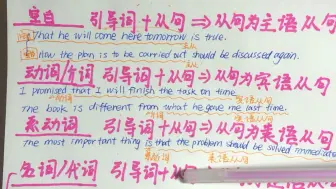 空白 引导词+从句⇒从句为主语从句
That he will come here tomorrow is true.
How the plan is to be carried out should be discussed again.
动词/介词 引导词+从句⇒从句为宾语从句
I promised that I will finish the task on time.
宾语从句
The book is different from what he gave me last time.
介词 宾语从句
系动词 引导词+从句⇒从句为表语从句
The most important thing is that the problem should be solved immediate
系动词 表语从句
名词/代词 引导词+从